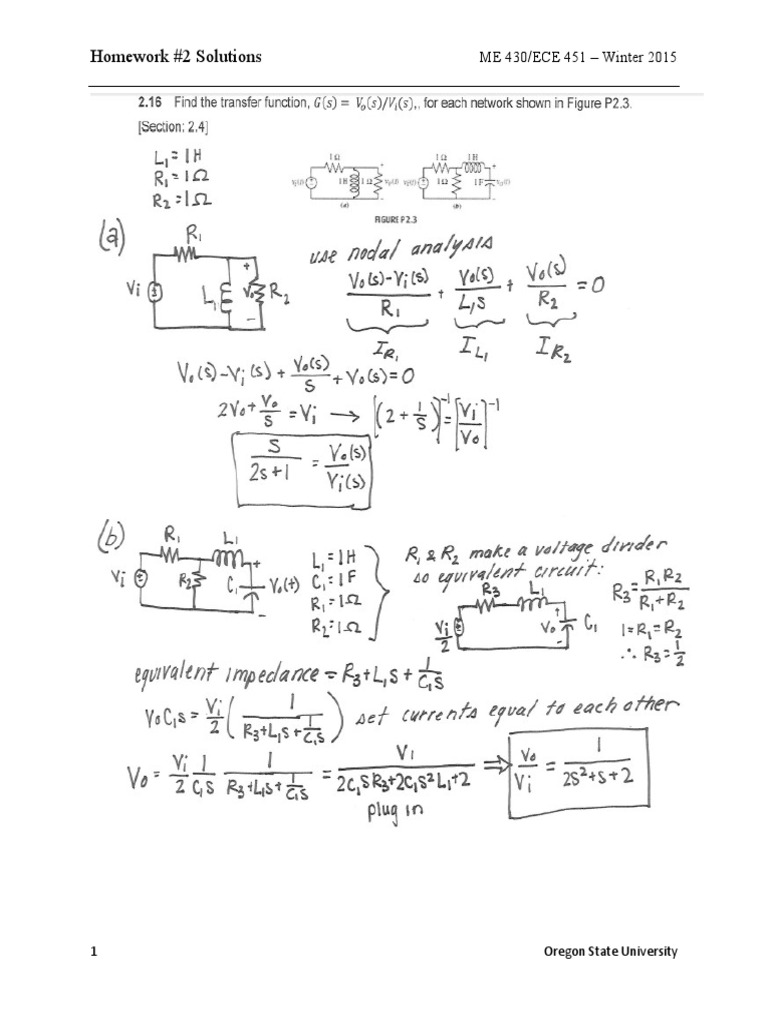 Homework #2 Solutions ME 430/ECE 451 – Winter 2015
2.16 Find the transfer function, G(s) = Vo(s)/Vi(s),, for each network shown in Figure P2.3.
[Section: 2.4]
L1 = 1H
R1 = 1Ω
R2 = 1Ω
1 Ω 1 Ω 1 H
1 H 1 Ω 1 Ω 1 F
(a) (b)
FIGURE P2.3
(a)
R1
Vi L1 + Vo - R2
use nodal analysis
Vo(s)-Vi(s)/R1 + Vo(s)/L1s + Vo(s)/R2 = 0
IR1 IL1 IR2
Vo(s)-Vi(s) + Vo(s)/s + Vo(s) = 0
2Vo + Vo/s = Vi → [(2 + 1/s)]^-1 = [Vi/Vo]^-1
s/2s+1 = Vo(s)/Vi(s)
(b)
R1 L1
Vi R2 C1 + - Vo(t)
L1 = 1H
C1 = 1F
R1 = 1Ω
R2 = 1Ω
R1 & R2 make a voltage divider
so equivalent circuit:
R3 L1
Vi/2 + Vo - C1
R3 = R1R2/R1+R2
1 = R1 = R2
∴ R3 = 1/2
equivalent impedance = R3 + L1s + 1/C1s
VoC1s = Vi/2 (1/R3+L1s+1/C1s) set currents equal to each other
Vo = Vi/2 1/C1s 1/R3+L1s+1/C1s = Vi/2C1sR3+2C1s²L1+2 ⇒ Vo/Vi = 1/2s²+s+2
plug in
1 Oregon State University